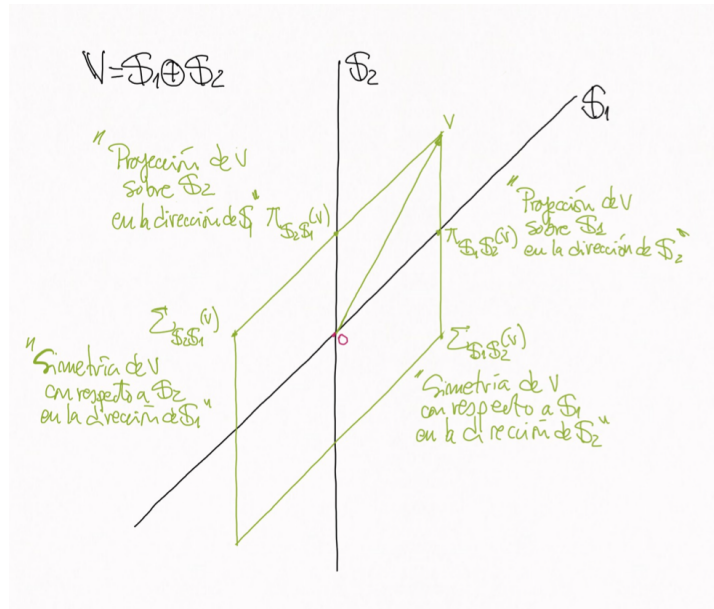 V=$₁⊕$₂
$₂
$₁
V
"Proyección de V
sobre $₂
en la dirección de $₁"
π$₂$₁(v)
"Proyección de V
sobre $₁
en la dirección de $₂"
π$₁$₂(v)
Σ$₂$₁(v)
"Simetría de V
con respecto a $₂
en la dirección de $₁"
O
Σ$₁$₂(v)
"Simetría de V
con respecto a $₁
en la dirección de $₂"